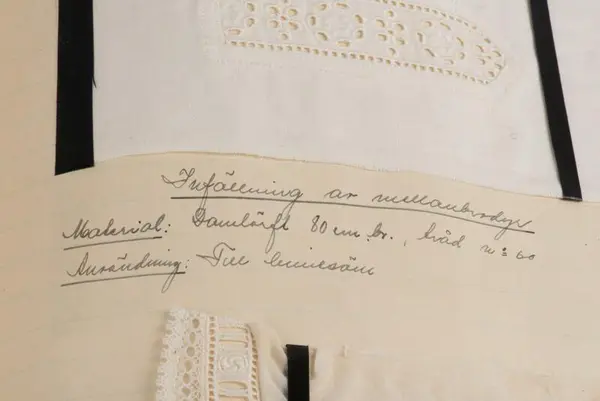 Infällning av mellanbrodyr
Material: Damlärft 80 cm. br., tråd nº 60
Användning: Till linnesöm